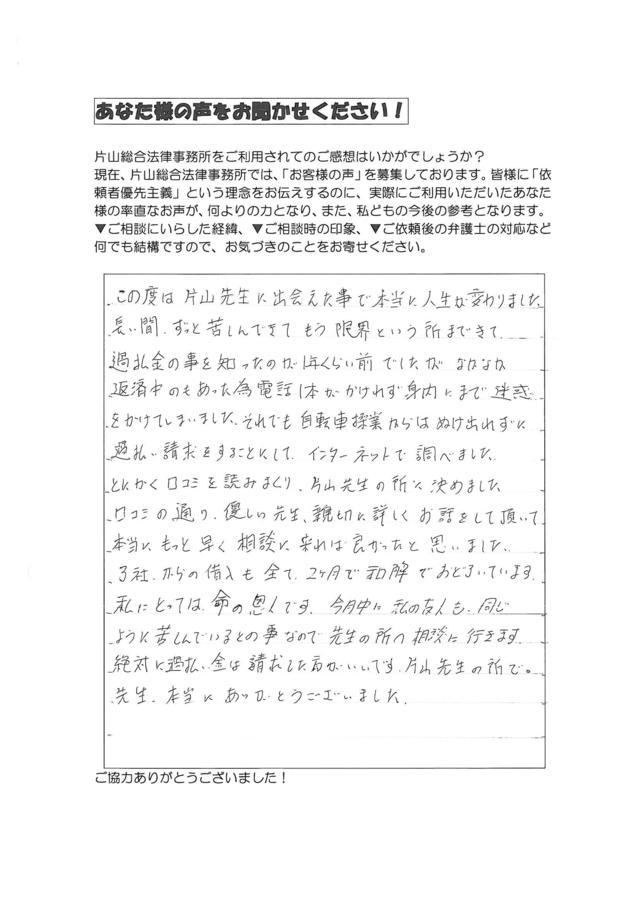 あなた様の声をお聞かせください！
片山総合法律事務所をご利用されてのご感想はいかがでしょうか？
現在、片山総合法律事務所では、「お客様の声」を募集しております。皆様に「依
頼者優先主義」という理念をお伝えするのに、実際にご利用いただいたあなた
様の率直なお声が、何よりの力となり、また、私どもの今後の参考となります。
▼ご相談にいらした経緯、▼ご相談時の印象、▼ご依頼後の弁護士の対応など
何でも結構ですので、お気づきのことをお寄せください。
この度は片山先生に出会えた事で本当に人生が変わりました。
長い間、ずっと苦しんできて もう限界という所まできて
過払金の事を知ったのが1年くらい前でしたが なかなか
返済中のもあった為電話1本がかけれず身内にまで迷惑
をかけてしまいました。それでも自転車操業からはぬけ出れずに
過払い請求をすることにして、インターネットで調べました。
とにかく口コミを読みまくり、片山先生の所に決めました
口コミの通り、優しい先生、親切に詳しくお話をして頂いて
本当に、もっと早く相談に来れば良かったと思いました。
3社からの借入も全て、2ヶ月で和解でおどろいています。
私にとっては、命の恩人です。今月中に私の友人も、同じ
ように苦しんでいるとの事なので先生の所へ相談に行きます。
絶対に過払い金は請求した方がいいです。片山先生の所で。
先生、本当にありがとうございました。
ご協力ありがとうございました！